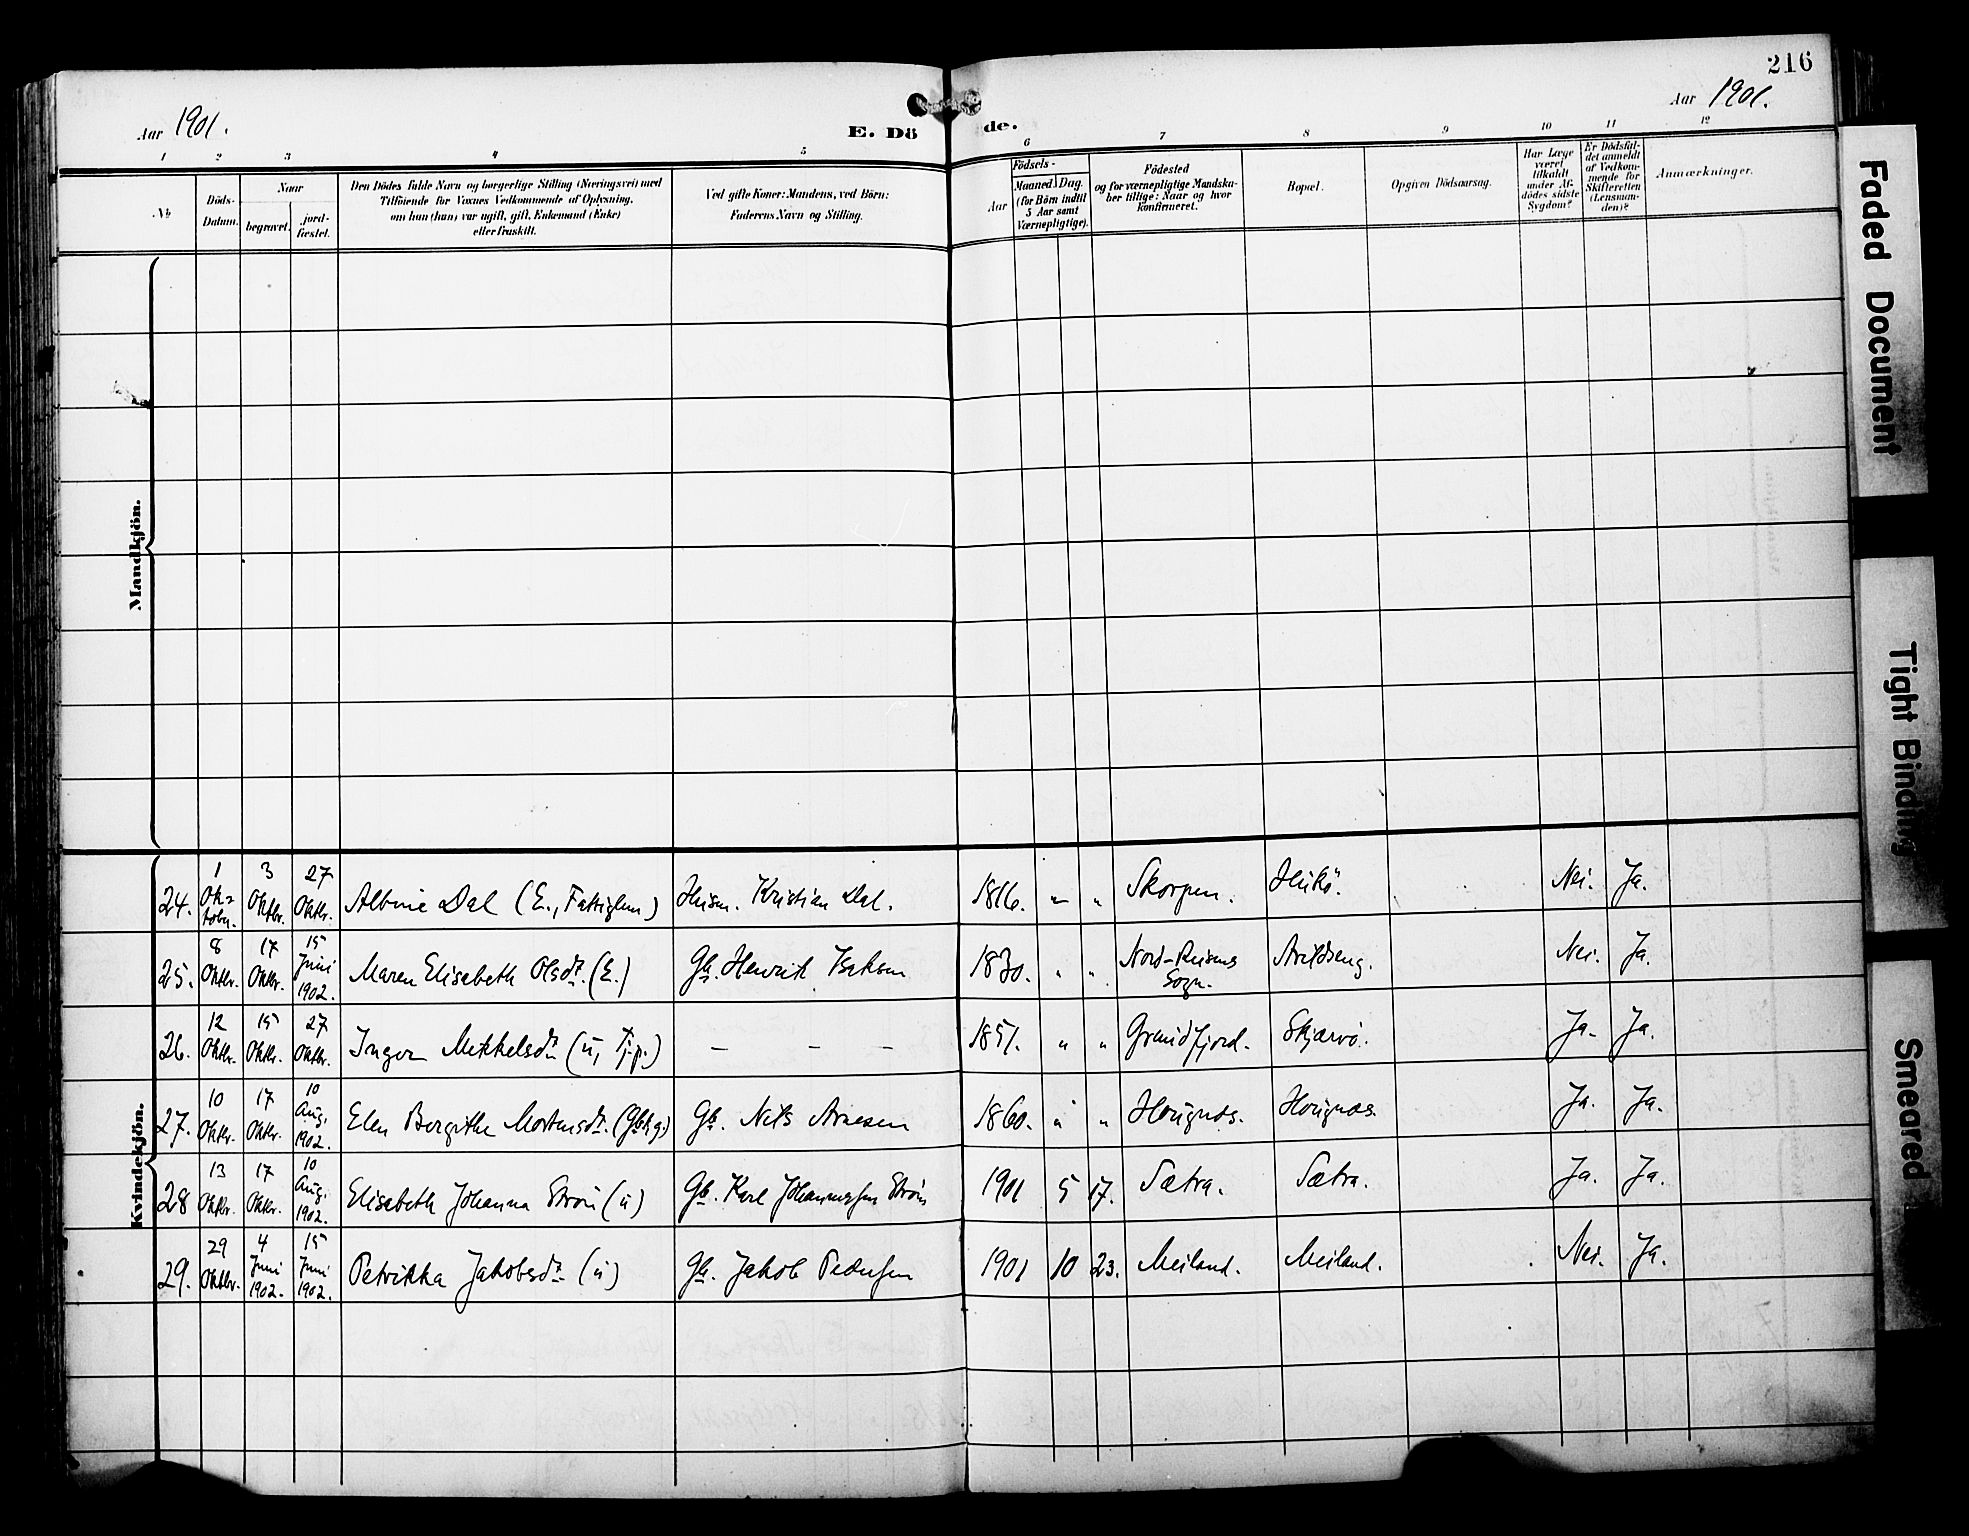 216
Aar 1901.
Aar 1901.
E. Dö de.
1 2 3 4 5 6 7 8 9 10 11 12
№
Döds-
Datum.
Naar
begravet.
jord-
fæstet.
Den Dödes fulde Navn og borgerlige Stilling (Næringsvei) med
Tilföiende for Voxnes Vedkommende af Oplysning,
om hun (han) var ugift, gift, Enkemand (Enke)
eller fraskilt.
Ved gifte Koner: Mandens, ved Börn:
Faderens Navn og Stilling.
Födsels-
Aar
Maaned. Dag.
(for Börn indtil
5 Aar samt
Værnepligtige).
Födested
og for værnepligtige Mandska-
ber tillige: Naar og hvor
konfirmeret.
Bopæl.
Opgiven Dödsaarsag.
Har Læge
været
tilkaldt
under Af-
dödes sidste
Sygdom?
Er Dödsfal-
det anmeldt
af Vedkom-
mende for
Skifteretten
(Lensman-
den)?
Anmærkninger.
Mandkjön.
Kvindekjön.
24. 1 Ok= tobr. 3 Oktbr. 27 Oktbr. Albine Dal (E., Fattiglem) Husm. Kristian Dal. 1816. " " Skorpen. Nei. Ja.
25. 8 Oktbr. 17 Oktbr. 15 Juni 1902. Maren Elisabeth Olsdt. (E.) Gb. Henrik Isaksen 1830. " " Nord-Reisens Sogn. Arildseng. Nei. Ja.
26. 12 Oktbr. 15 Oktbr. 27 Oktbr. Inger Mikkelsdt. (u, Tj.p.) — — — 1851. " " Grundfjord. Skjærvö. Ja. Ja.
27. 10 Oktbr. 17 Oktbr. 10 Aug. 1902. Elen Bergithe Mortensdt. Gb. Nils Arnesen 1860. " " Haugnæs. Haugnæs. Ja. Ja.
28 13 Oktbr. 17 Oktbr. 10 Aug. 1902. Elisabeth Johanna Ström (u) Gb. Karl Johannessen Ström 1901 5 17. Sætra. Sætra. Ja. Ja.
29. 29 Oktbr. 4 Juni 1902. 15 Juni 1902. Petrikka Jakobsdt. (u) Gb. Jakob Pedersen 1901 10 23. Meiland. Meiland. Nei. Ja.
Faded Document
Tight Binding
Smeared